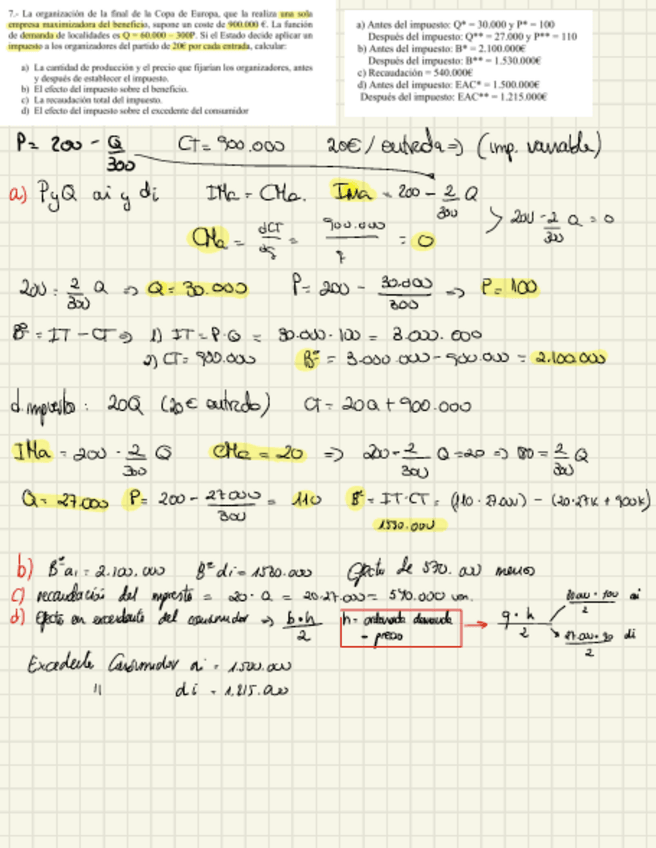 7.- La organización de la final de la Copa de Europa, que la realiza una sola
empresa maximizadora del beneficio, supone un coste de 900.000 €. La función
de demanda de localidades es Q = 60.000 – 300P. Si el Estado decide aplicar un
impuesto a los organizadores del partido de 20€ por cada entrada, calcular:
a) La cantidad de producción y el precio que fijarían los organizadores, antes
y después de establecer el impuesto.
b) El efecto del impuesto sobre el beneficio.
c) La recaudación total del impuesto.
d) El efecto del impuesto sobre el excedente del consumidor
a) Antes del impuesto: Q* = 30.000 y P* = 100
Después del impuesto: Q** = 27.000 y P** = 110
b) Antes del impuesto: B* = 2.100.000€
Después del impuesto: B** = 1.530.000€
c) Recaudación = 540.000€
d) Antes del impuesto: EAC* = 1.500.000€
Después del impuesto: EAC** = 1.215.000€
P = 200 - Q/300 CT = 900.000 20€ / entrada => (imp. variable)
a) P y Q ai y di IMa = CMa. IMa = 200 - 2/300 Q
CMa = dCT/dq = 900.000/q = 0 > 200 - 2/300 Q = 0
200 = 2/300 Q => Q = 30.000 P = 200 - 30.000/300 => P = 100
Bº = IT - CT => 1) IT = P·Q = 30.000 · 100 = 3.000.000
2) CT = 900.000 Bº = 3.000.000 - 900.000 = 2.100.000
d. impuesto: 20Q (20€ entrada) CT = 20Q + 900.000
IMa = 200 - 2/300 Q CMa = 20 => 200 - 2/300 Q = 20 => 180 = 2/300 Q
Q = 27.000 P = 200 - 27.000/300 = 110 Bº = IT - CT = (110 · 27.000) - (20·27K + 900K)
1530.000
b) Bº ai = 2.100.000 Bº di = 1530.000 Efecto de 570.000 menos
c) recaudación del impuesto = 20 · Q = 20·27.000 = 540.000 um.
d) Efecto en excedente del consumidor => b·h/2 h = ordenada demanda - precio → q·h/2 30.000 · 100/2 ai
27.000 · 90/2 di
Excedente Consumidor ai = 1.500.000
" di = 1.215.000